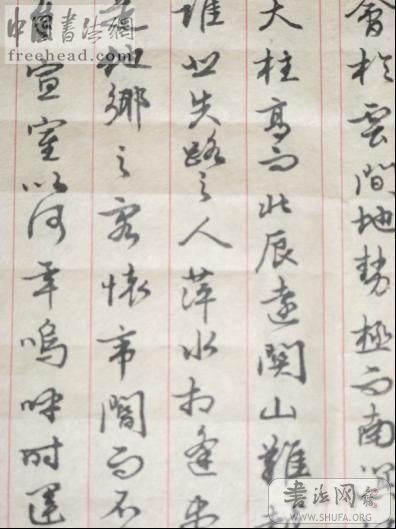 會於雲間地勢極而南溟
天柱高而北辰遠關山難
誰悲失路之人萍水相逢盡
是他鄉之客懷帝閽而不
奉宣室以何年嗚呼時運
中國書法網
freehead.com
書法网
WWW.SHUFA.ORG